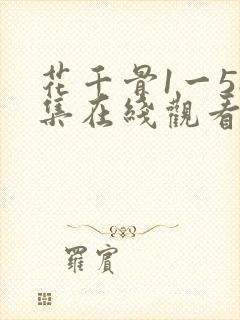 花千骨1一5
集在綫觀看
羅賓